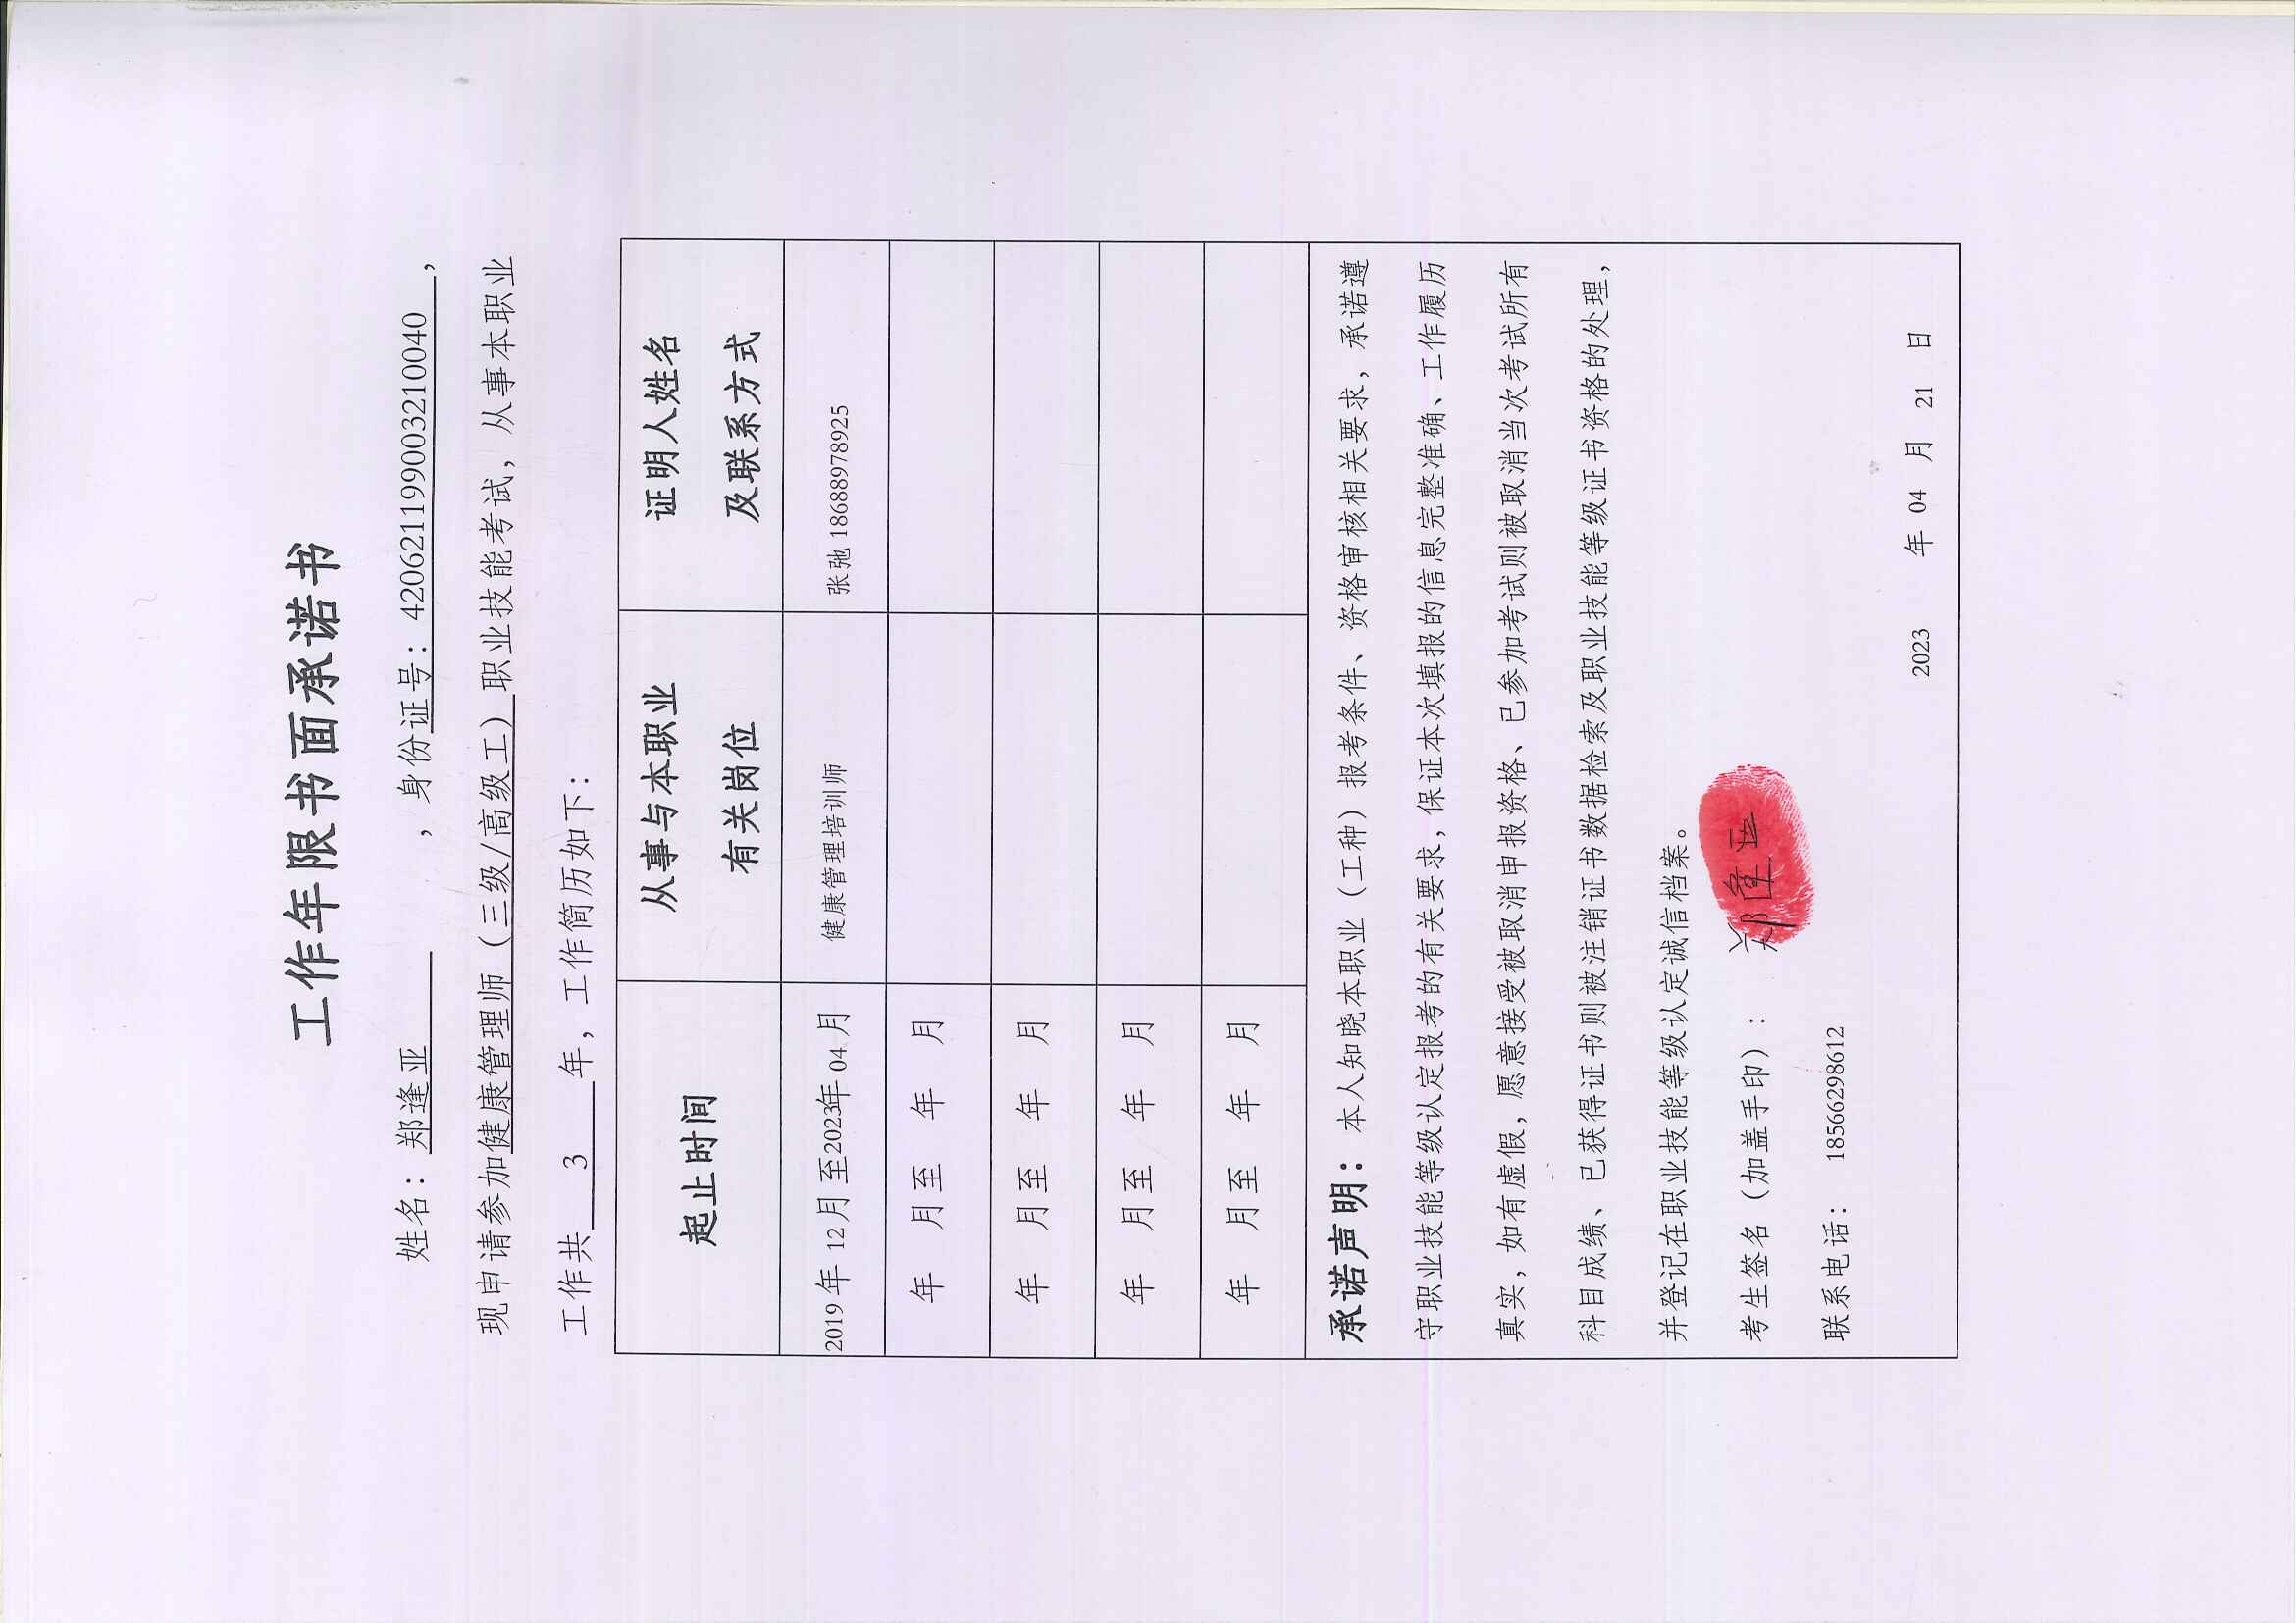 工作年限书面承诺书
姓名：郑逢亚 ，身份证号：420621199003210040，
现申请参加健康管理师（三级/高级工）职业技能考试，从事本职业
工作共 3 年，工作简历如下：
起止时间 从事与本职业有关岗位 证明人姓名及联系方式
2019 年 12 月 至2023年 04 月 健康管理培训师 张弛 18688978925
年 月 至 年 月
年 月 至 年 月
年 月 至 年 月
年 月 至 年 月
承诺声明：本人知晓本职业（工种）报考条件、资格审核相关要求，承诺遵
守职业技能等级认定报考的有关要求，保证本次填报的信息完整准确、工作履历
真实，如有虚假，愿意接受被取消申报资格、已参加考试则被取消当次考试所有
科目成绩、已获得证书则被注销证书数据检索及职业技能等级证书资格的处理，
并登记在职业技能等级认定诚信档案。
考生签名（加盖手印）： 郑逢亚
联系电话： 18566298612
2023 年 04 月 21 日